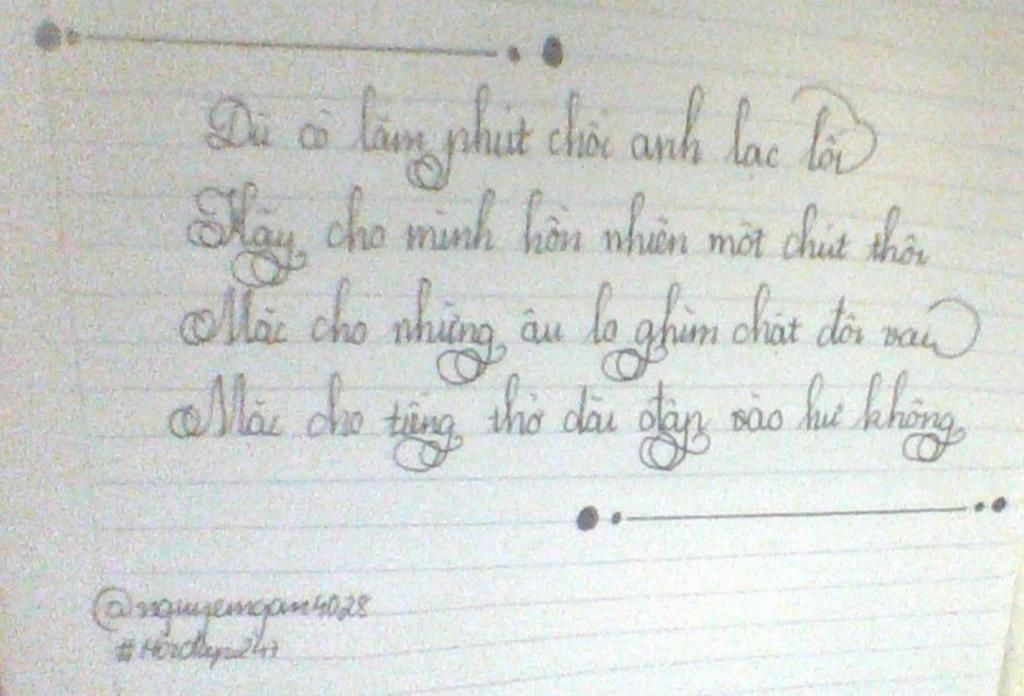 Dù có lắm phút chốc anh lạc lối
Hãy cho mình hồn nhiên một chút thôi
Mặc cho những âu lo ghìm chặt đôi vai
Mặc cho tiếng thở dài đập vào hư không
@nguyenngan4028